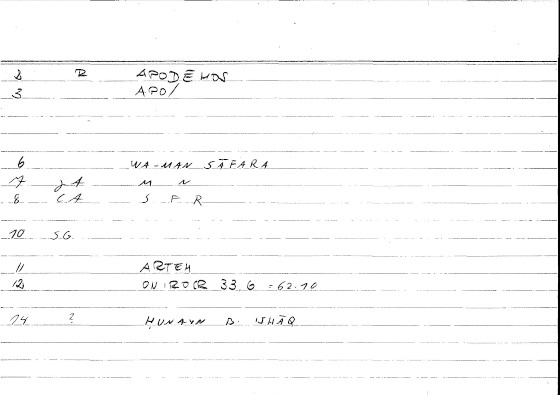 2 R APODEMOS
3 APO/
6 WA-MAN SĀFARA
7 gA M N
8 CA S F R
10 SG.
11 ARTEM
12 ONIROCR 33.6 = 62.10
14 ? ḤUNAYN B. ISḤĀQ